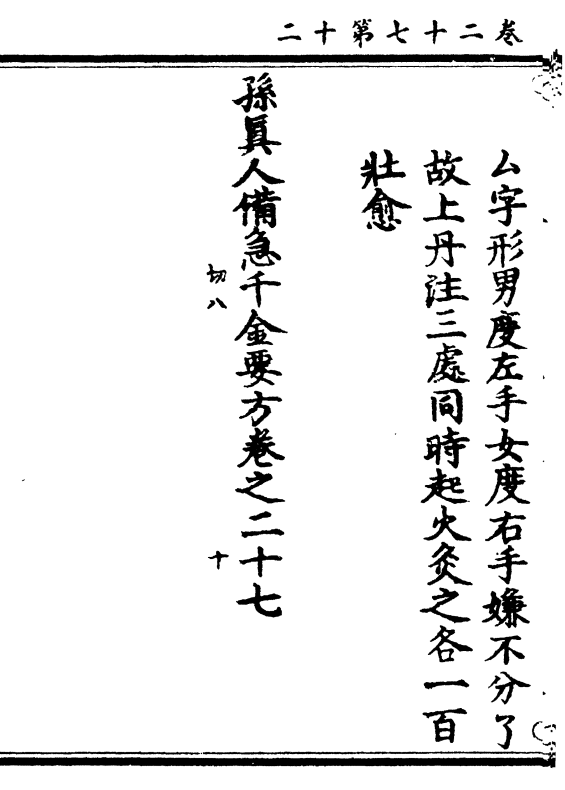 卷二十七第十二
厶字形男度左手女度右手嫌不分了
故上丹注三處同時起火灸之各一百
壯愈
孫眞人備急千金要方卷之二十七
切八
十